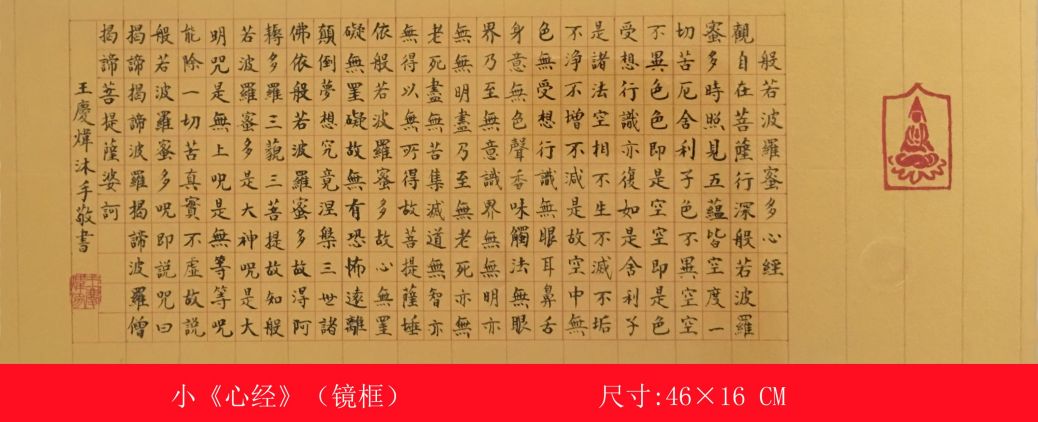 般若波羅蜜多心經
觀自在菩薩行深般若波羅
蜜多時照見五蘊皆空度一
切苦厄舍利子色不異空空
不異色色即是空空即是色
受想行識亦復如是舍利子
是諸法空相不生不滅不垢
不淨不增不減是故空中無
色無受想行識無眼耳鼻舌
身意無色聲香味觸法無眼
界乃至無意識界無無明亦
無無明盡乃至無老死亦無
老死盡無苦集滅道無智亦
無得以無所得故菩提薩埵
依般若波羅蜜多故心無罣
礙無罣礙故無有恐怖遠離
顛倒夢想究竟涅槃三世諸
佛依般若波羅蜜多故得阿
耨多羅三藐三菩提故知般
若波羅蜜多是大神咒是大
明咒是無上咒是無等等咒
能除一切苦真實不虛故說
般若波羅蜜多咒即說咒曰
揭諦揭諦波羅揭諦波羅僧
揭諦菩提薩婆訶
王慶煒沐手敬書
小《心经》（镜框） 尺寸:46×16 CM